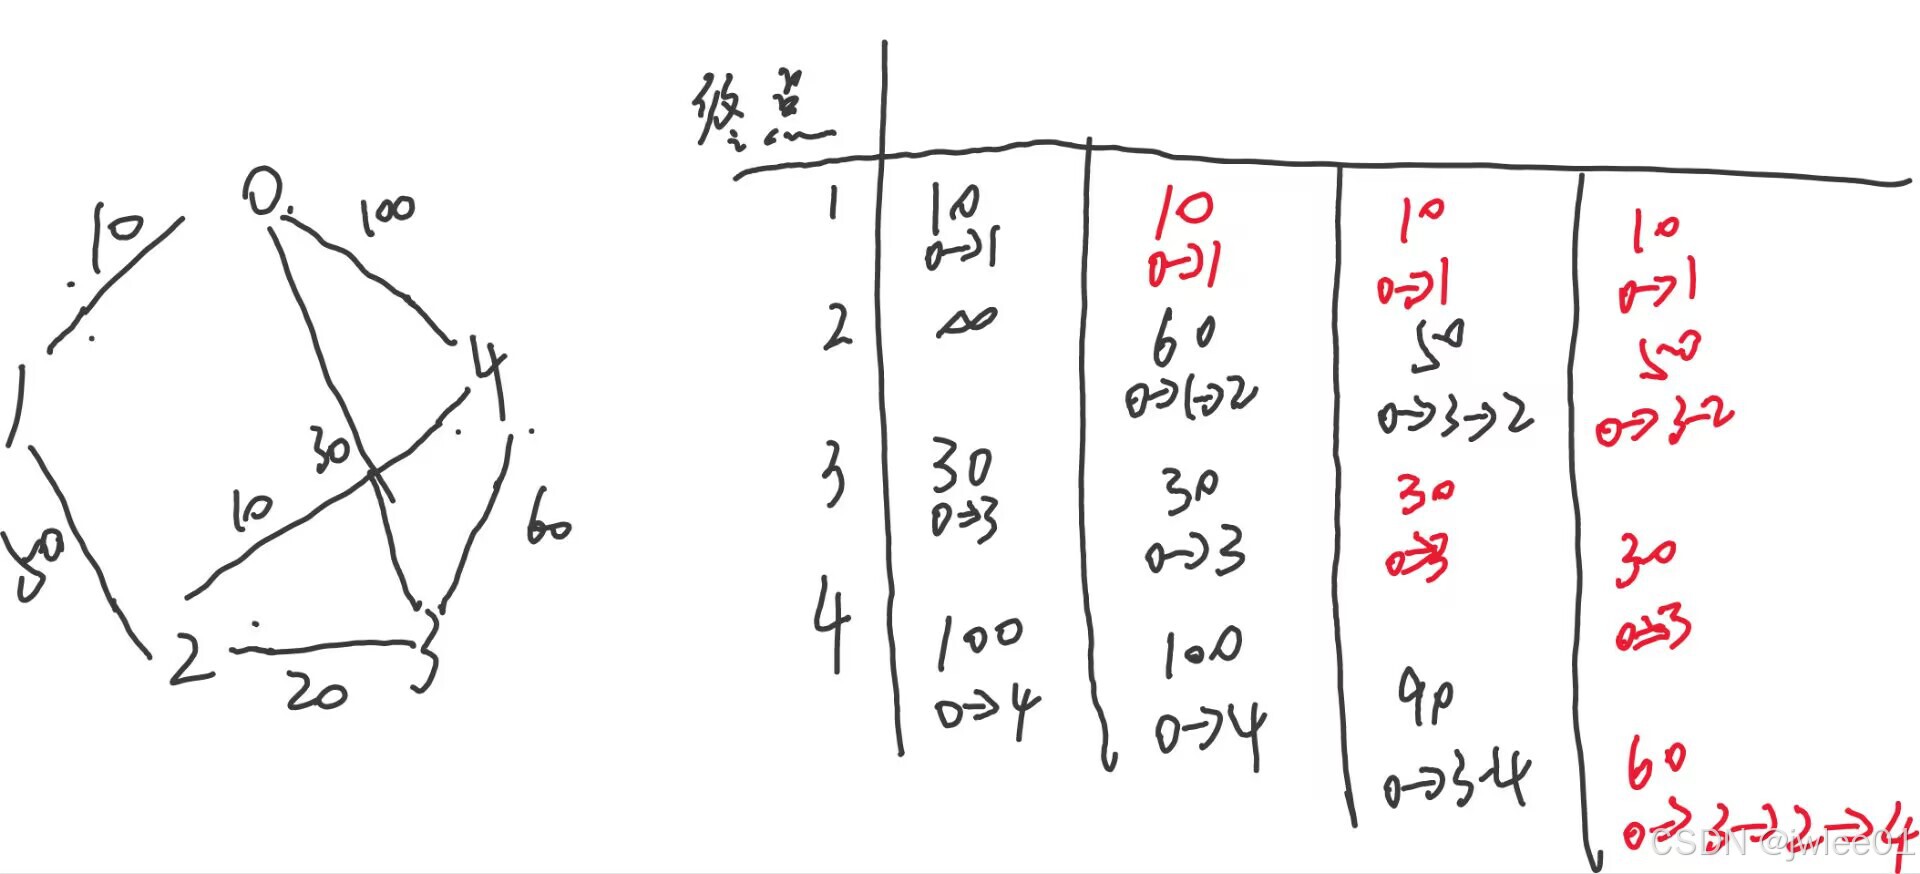 0
10
100
1
4
30
10
50
60
2
3
20
终点
1
10
10
10
10
0→1
0→1
0→1
0→1
2
∞
60
50
50
0→1→2
0→3→2
0→3-2
3
30
30
30
30
0→3
0→3
0→3
0→3
4
100
100
90
60
0→4
0→4
0→3-4
0→3→2→4
CSDN @jwlee01